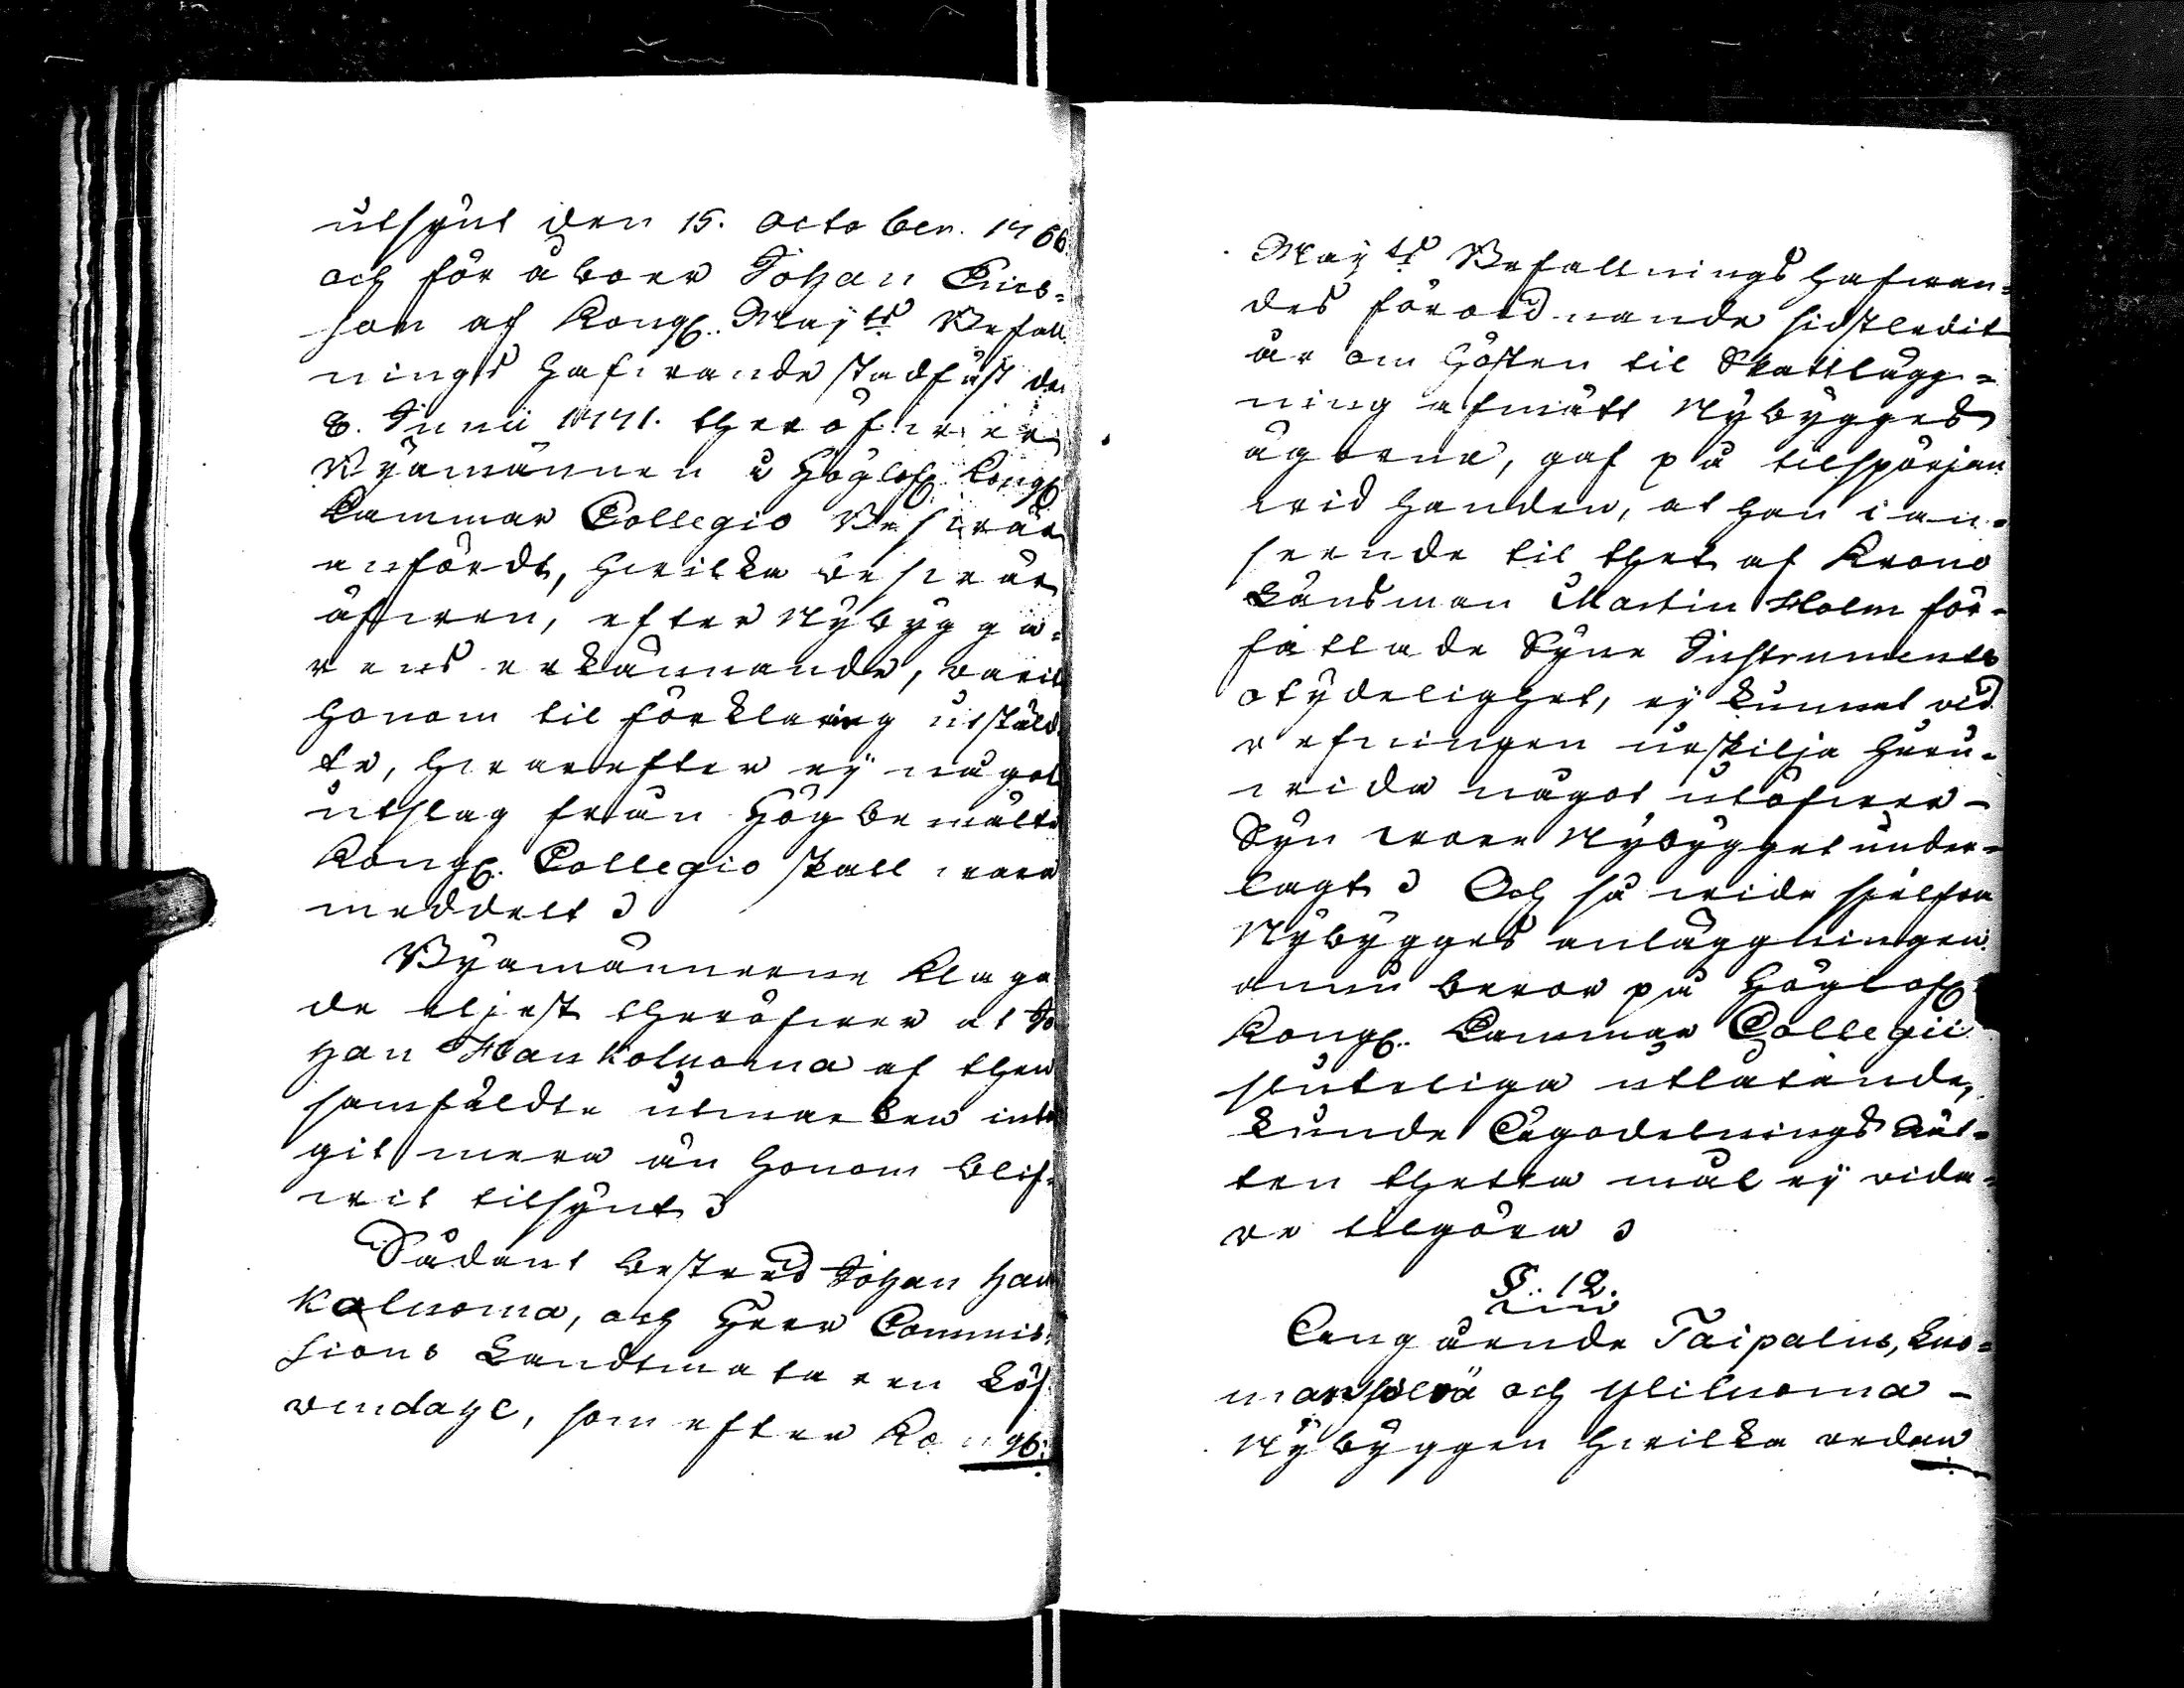 utsynt den 15. October. 1766.
och för åboer Johan Erics=
son af Kongl. Maj:ts Befall
nings Hafwande stadfäst den
8. Junii 1771. theröfwer
Byamännen i Höglofl. Kongl.
Cammar Collegio Beswär
anfördt, hwilka beswär
äfwen, efter Nybygga=
rens erkännande, varit
honom til förklaring utstäld
te, hwarefter ej något
utslag från Högbemälte
Kongl. Collegio skall wara
meddelt
Byamännerne klaga
de eljest theröfwer at Jo
han Hankoluoma af then
samfäldte utmarken inta
git mera än honom blif=
wit tilsynt
Sådant bestred Johan Han
koluoma, och Herr Commis=
sions Landtmätaren Löf
vendahl, som efter Kongl.
Maj:ts Befallningshafwan=
des förordnande sidstledit
år om hösten til Skattlägg=
ning afmätt Nybygges
ägorne, gaf på tilspörjan
wid handen, at han i an=
seende til thet af Krono
Länsman Martin Holm för=
fattade Syne Instruments
otydelighet, ej kunnat vid
refningen urskilja huru=
wida något utöfwer
Syn wore Nybygget under=
lagt Och så wida sjelfva
Nybygges anläggningen
ännu beror på Höglofl.
Kongl. Cammar Collegii
sluteliga utlåtande,
kunde Ägodelnings Rät=
ten thetta mål ej vida=
re tilgöra
§. 12.
Angående Taipalus, Luo=
mansilvä och Yliluoma
Nybyggen hwilka redan